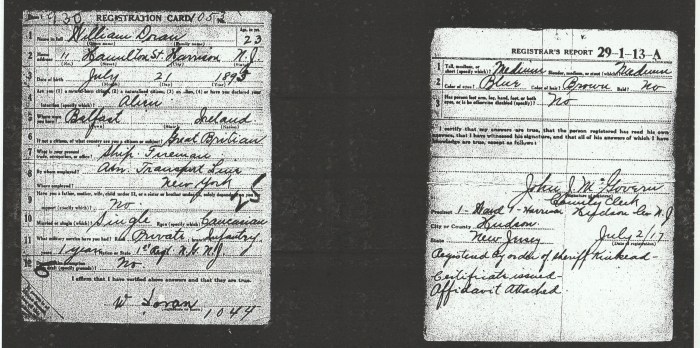 REGISTRATION CARD
1 Name in full William Doran Age, in yrs. 23
2 Home address 11 Hamilton St. Harrison N.J.
3 Date of birth July 21
4 Are you (1) a natural-born citizen, (2) a naturalized citizen, (3) an alien, (4) or have you declared your intention (specify which)? Alien
5 Where were you born? Balfast Ireland
6 If not a citizen, of what country are you a citizen or subject? Great
7 What is your present trade, occupation, or office? Ship Foreman
8 By whom employed? Am. Transport Line
Where employed? New York
9 Have you a father, mother, wife, child under 12, or a sister or brother under 12, solely dependent on you for support (specify which)? No.
10 Married or single (which)? Single Race (specify which)? Caucasian
11 What military service have you had? Rank Private; branch Infantry
years 1 year; Nation or State 1st Regt. N.G. N.J.
12 No.
I affirm that I have verified above answers and that they are true.
W Doran
1044
REGISTRAR'S REPORT 29-1-13-A
1 Tall, medium, or short (specify which)? Medium Slender, medium, or stout (which)? Medium
2 Color of eyes? Blue Color of hair? Brown Bald? No
3 Has person lost arm, leg, hand, foot, or both eyes, or is he otherwise disabled (specify)? No
I certify that my answers are true, that the person registered has read his own answers, that I have witnessed his signature, and that all of his answers of which I have knowledge are true, except as follows:
John J. McGovern
County Clerk
Precinct 1-Ward 1-Harrison Hudson Co N.J
City or County Hudson
State New Jersey July 2/17
(Date of registration)
Registered By order of sheriff Kinkead-
Certificate issued
Affidavit Attached.